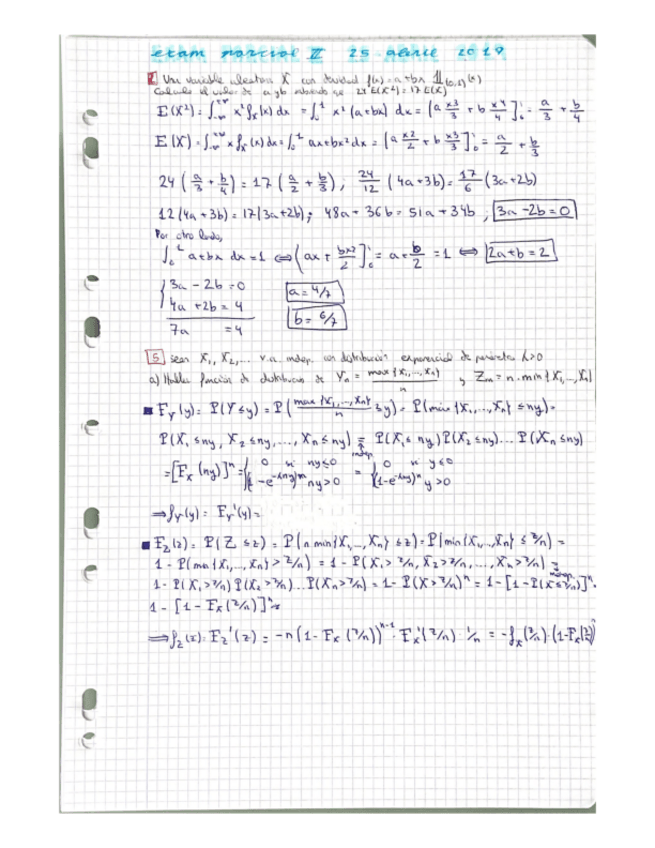 exam parcial II 25 abril 2019
2 Una variable aleatoria X con densidad f(x) = a + bx 𝟙(0,1)(x)
Calcule el valor de a y b sabiendo que 24 E(X²) = 17 E(X)
E(X²) = ∫_{-∞}^{+∞} x² f_X(x) dx = ∫_0^1 x² (a+bx) dx = (a x³/3 + b x⁴/4]_0^1 = a/3 + b/4
E(X) = ∫_{-∞}^{+∞} x f_X(x) dx = ∫_0^1 ax+bx² dx = (a x²/2 + b x³/3]_0^1 = a/2 + b/3
24 (a/3 + b/4) = 17 (a/2 + b/3) ; 24/12 (4a+3b) = 17/6 (3a+2b)
12 (4a+3b) = 17(3a+2b) ; 48a + 36b = 51a + 34b , 3a - 2b = 0
Por otro lado,
∫_0^1 a+bx dx = 1 ⟺ (ax + bx²/2]_0^1 = a + b/2 = 1 ⟺ 2a+b = 2
3a - 2b = 0
4a + 2b = 4
7a = 4
a = 4/7
b = 6/7
5 sean X₁, X₂,... v.a indep. con distribución exponencial de parámetro λ>0
a) Hallar función de distribucion de Yₙ = max{X₁,...,Xₙ}/n , Zₘ = n·min{X₁,...,Xₙ}
F_Y(y) = P(Y≤y) = P(max{X₁,...,Xₙ}/n ≤ y) = P(máx{X₁,...,Xₙ} ≤ ny) =
P(X₁ ≤ ny, X₂ ≤ ny,..., Xₙ ≤ ny) = indep. P(X₁ ≤ ny) P(X₂ ≤ ny)... P(Xₙ ≤ ny)
= [F_X(ny)]ⁿ = { 0 si ny≤0 = { 0 si y≤0
(1-e^{-λny})ⁿ ny>0 (1-e^{-λny})ⁿ y>0
⟹ f_Y(y) = F_Y'(y) =
F_Z(z) = P(Z ≤ z) = P(n min{X₁,...,Xₙ} ≤ z) = P(min{X₁,...,Xₙ} ≤ z/n) =
1 - P(min{X₁,...,Xₙ} > z/n) = 1 - P(X₁ > z/n, X₂ > z/n,..., Xₙ > z/n) = indep
1 - P(X₁ > z/n) P(X₂ > z/n)...P(Xₙ > z/n) = 1 - P(X > z/n)ⁿ = 1 - [1 - P(X ≤ z/n)]ⁿ =
1 - [1 - F_X(z/n)]ⁿ =
⟹ f_Z(z) = F_Z'(z) = -n (1 - F_X(z/n))^{n-1} · F_X'(z/n) · 1/n = -f_X(z/n) · (1-F_X(z/n))